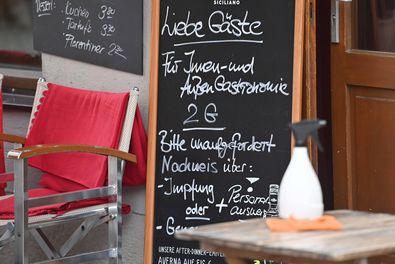 Dessert
Kuchen 3.80
Tartufo 3.80
Florentiner 2.80
SICILIANO
Liebe Gäste
Für Innen- und
Außen Gastronomie
2G
Bitte unaufgefordert
Nachweis über:
- Impfung + Personal
oder ausweis
- Gene
UNSERE AFTER-DINNER-EMPFE
AVERNA AUF EIS